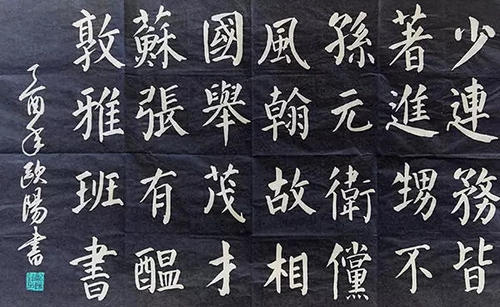 少連務皆
著進甥不
孫元衛儻
風翰故相
國舉茂才
蘇張有醞
敦雅班書
丁酉年歐陽書